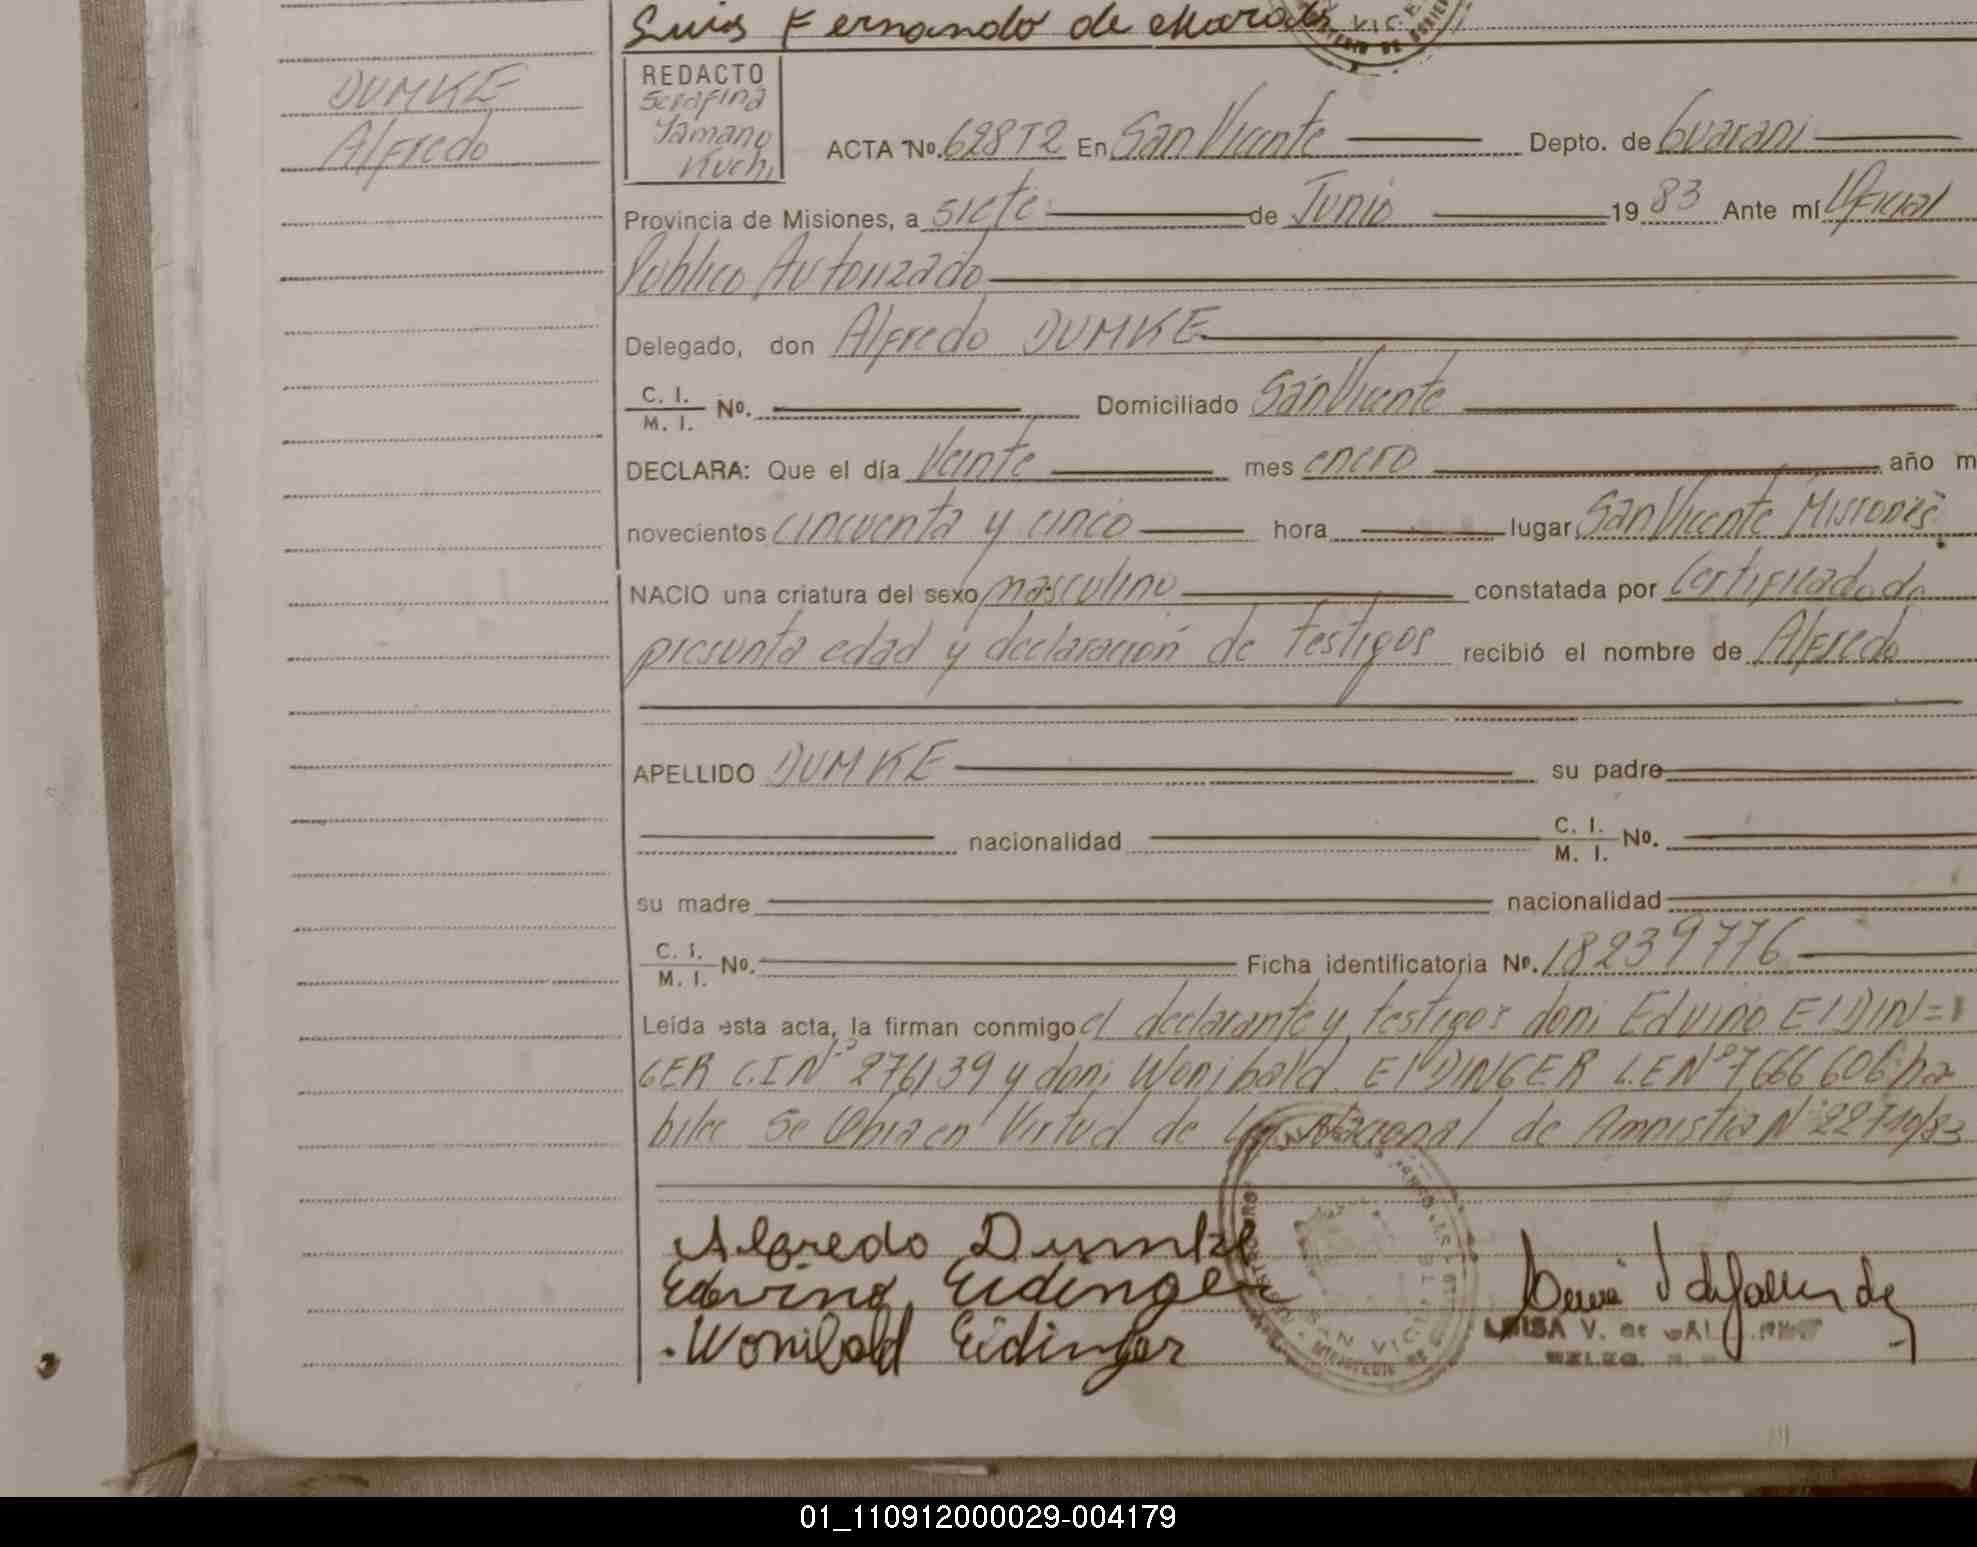 Luis Fernando de
DUMKE
Alfredo
REDACTO
Serafina
Yamano
Kuchi
ACTA No. 628 T2 En San Vicente Depto. de Guarani
Provincia de Misiones, a siete de Junio 19 83 Ante mí Oficial
Publico Autorizado
Delegado, don Alfredo DUMKE
C. I.
M. I. No. Domiciliado San Vicente
DECLARA: Que el día Veinte mes enero año m
novecientos cincuenta y cinco hora lugar San Vicente Misiones
NACIO una criatura del sexo masculino constatada por Certificado de
presunta edad y declaración de testigos recibió el nombre de Alfredo
APELLIDO DUMKE su padre
nacionalidad C. I.
M. I. No.
su madre nacionalidad
C. I.
M. I. No. Ficha identificatoria No. 18239776
Leída esta acta, la firman conmigo el declarante y testigos don: Edvino EIDIN=
GER C.I Nº 276139 y don: Wonibald EIDINGER L.E Nº 7666606 ha
biles Se Labra en Virtud de Ley Nacional de Amnistia Nº 22710/83
Alfredo Dumke
Edvino Eidinger
Wonibald Eidinger
SAN VICENTE
LUISA V. de
01_110912000029-004179